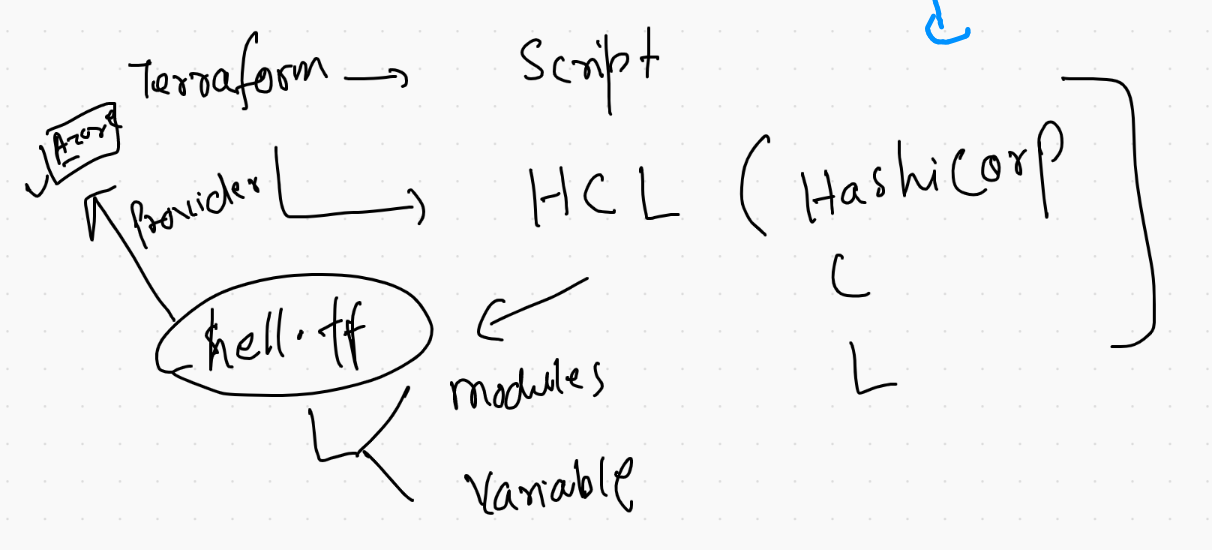 Terraform → Script
Azure
Provider
HCL (HashiCorp
C
L
hell.tf
modules
Variable